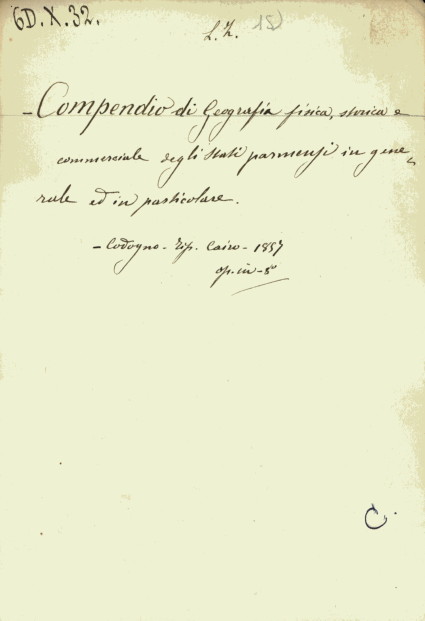 6D.X.32.
L.Z. 15)
- Compendio di Geografia fisica, storica e
commerciale degli Stati parmensi in gene
rale ed in particolare.
- Codogno - Tip. Cairo - 1857
op. in - 8°
C.